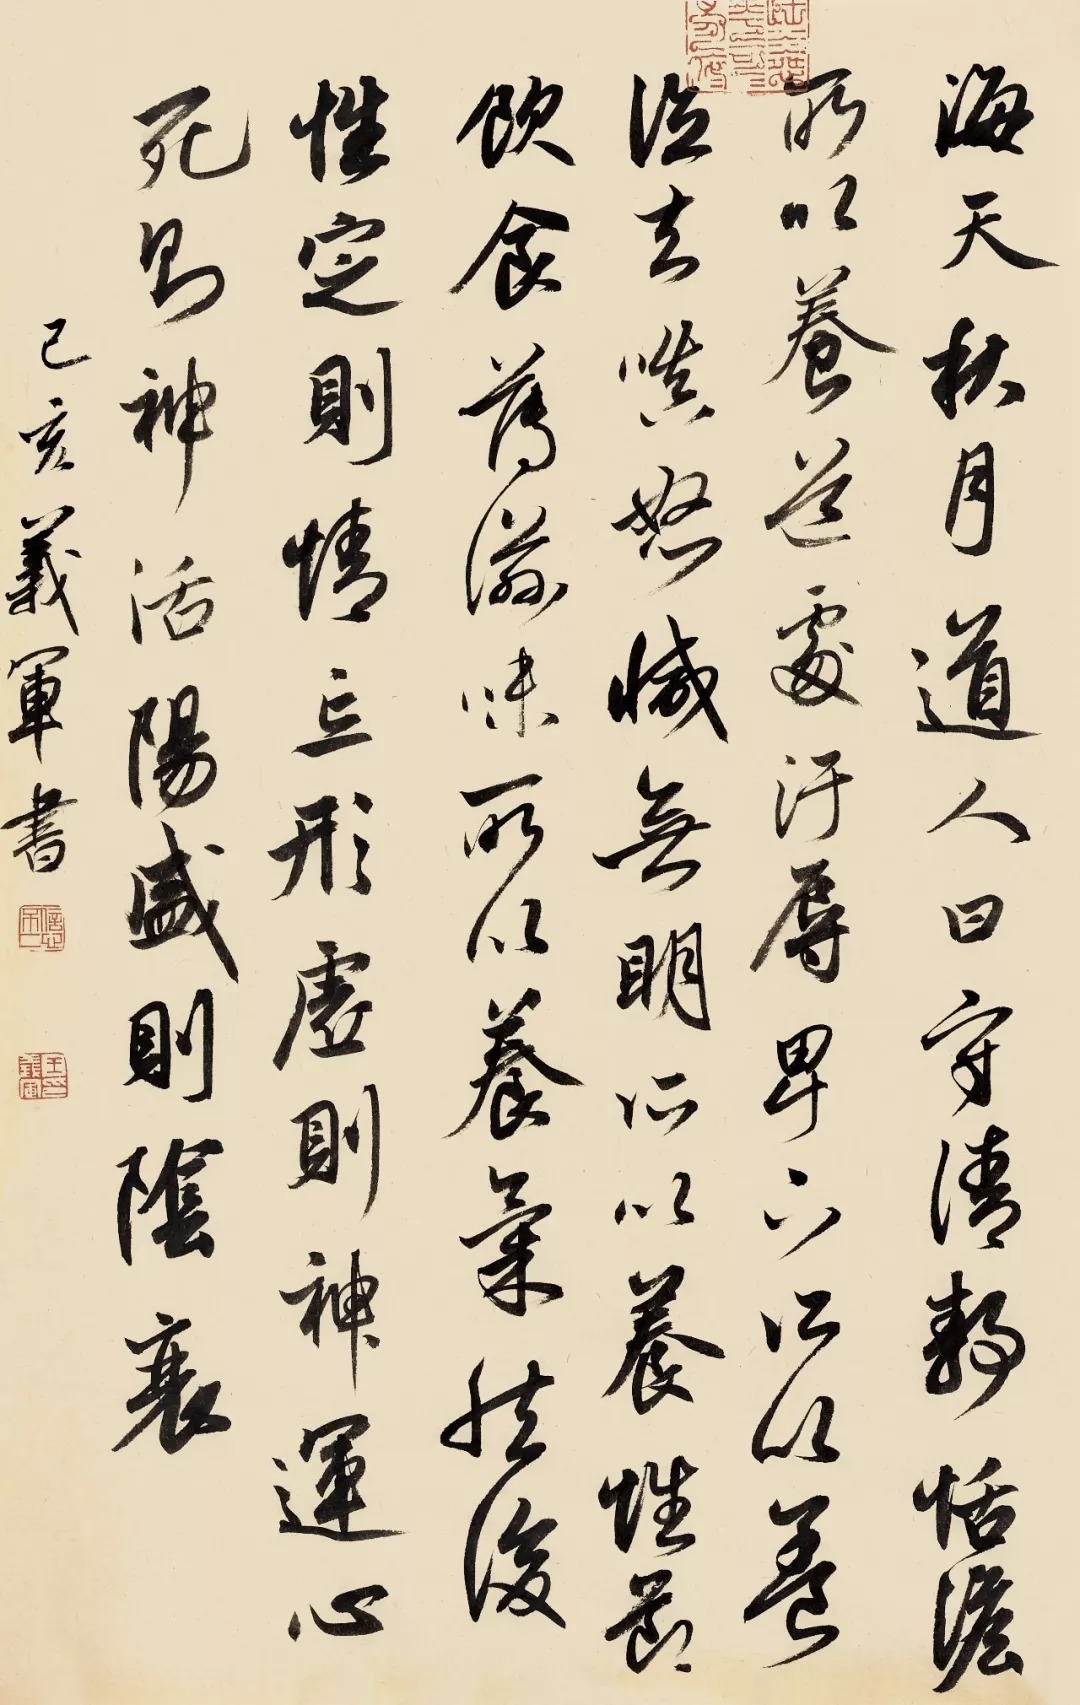 海天秋月道人曰守清靜恬澹
所以養道處汙辱卑下所以養
德去嗔怒滅無明所以養性節
飲食薄滋味所以養氣然後
性定則情忘形虛則神運心
死則神活陽盛則陰衰
己亥義軍書